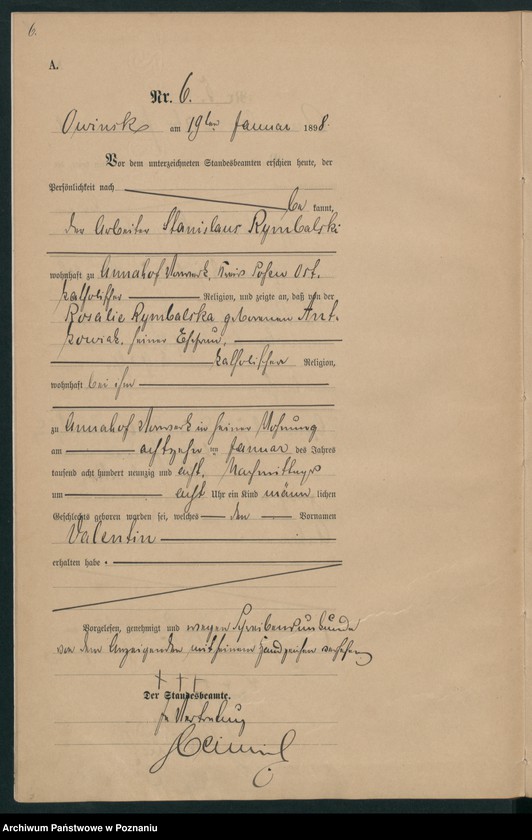 6.
A.
Nr. 6.
Owinsk am 19ten Januar 1898.
Vor dem unterzeichneten Standesbeamten erschien heute, der
Persönlichkeit nach
be kannt,
der Arbeiter Stanislaus Rymbalski
wohnhaft zu Annahof Vorwerk, Kreis Posen Ost.
katholischer Religion, und zeigte an, daß von der
Rosalie Rymbalska geborenen Ant-
kowiak, seiner Ehefrau,
katholischer Religion,
wohnhaft bei ihm
zu Annahof Vorwerk in seiner Wohnung
am achtzehn ten Januar des Jahres
tausend acht hundert neunzig und acht, Nachmittags
um acht Uhr ein Kind männ lichen
Geschlechts geboren worden sei, welches den Vornamen
Valentin
erhalten habe.
Vorgelesen, genehmigt und wegen Schreibensunkunde
von dem Anzeigenden mit seinem Handzeichen versehen
† † †
Der Standesbeamte.
In Vertretung
Archiwum Państwowe w Poznaniu